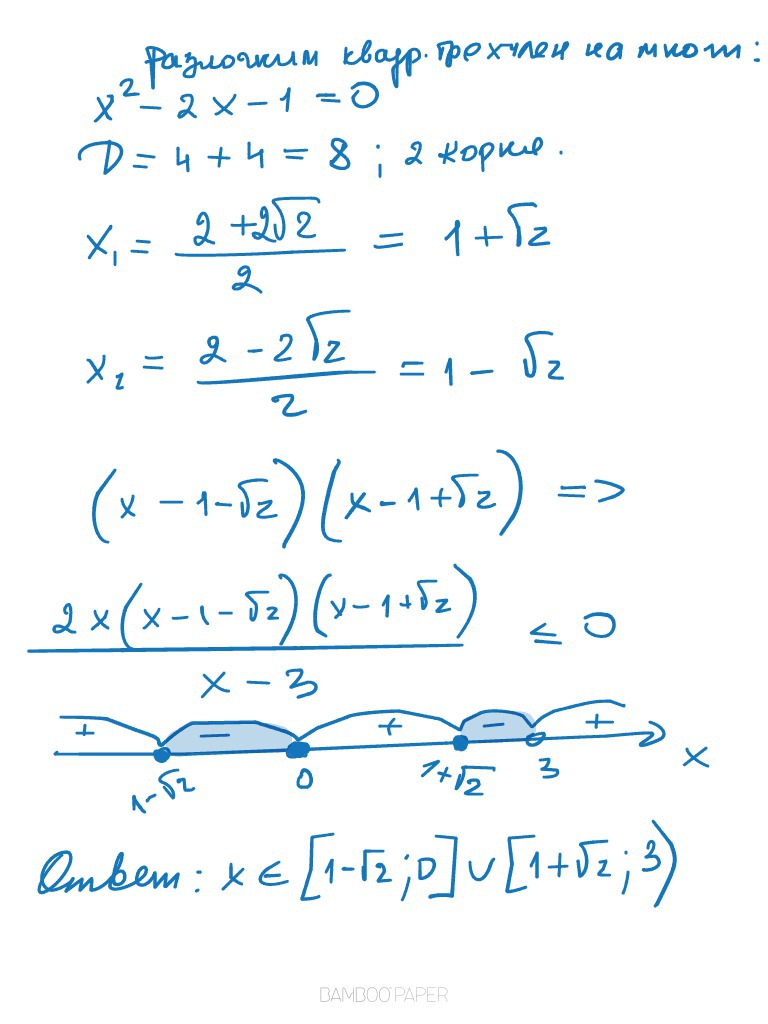 Разложим квадр. трехчлен на множ:
x² - 2x - 1 = 0
D = 4 + 4 = 8 ; 2 корня.
x₁ = (2 + 2√2)/2 = 1 + √2
x₂ = (2 - 2√2)/2 = 1 - √2
(x - 1 - √2)(x - 1 + √2) =>
2x(x - 1 - √2)(x - 1 + √2)
≤ 0
x - 3
+ − + − +
1-√2 0 1+√2 3 x
Ответ: x ∈ [1-√2 ; 0] ∪ [1+√2 ; 3)
BAMBOO PAPER